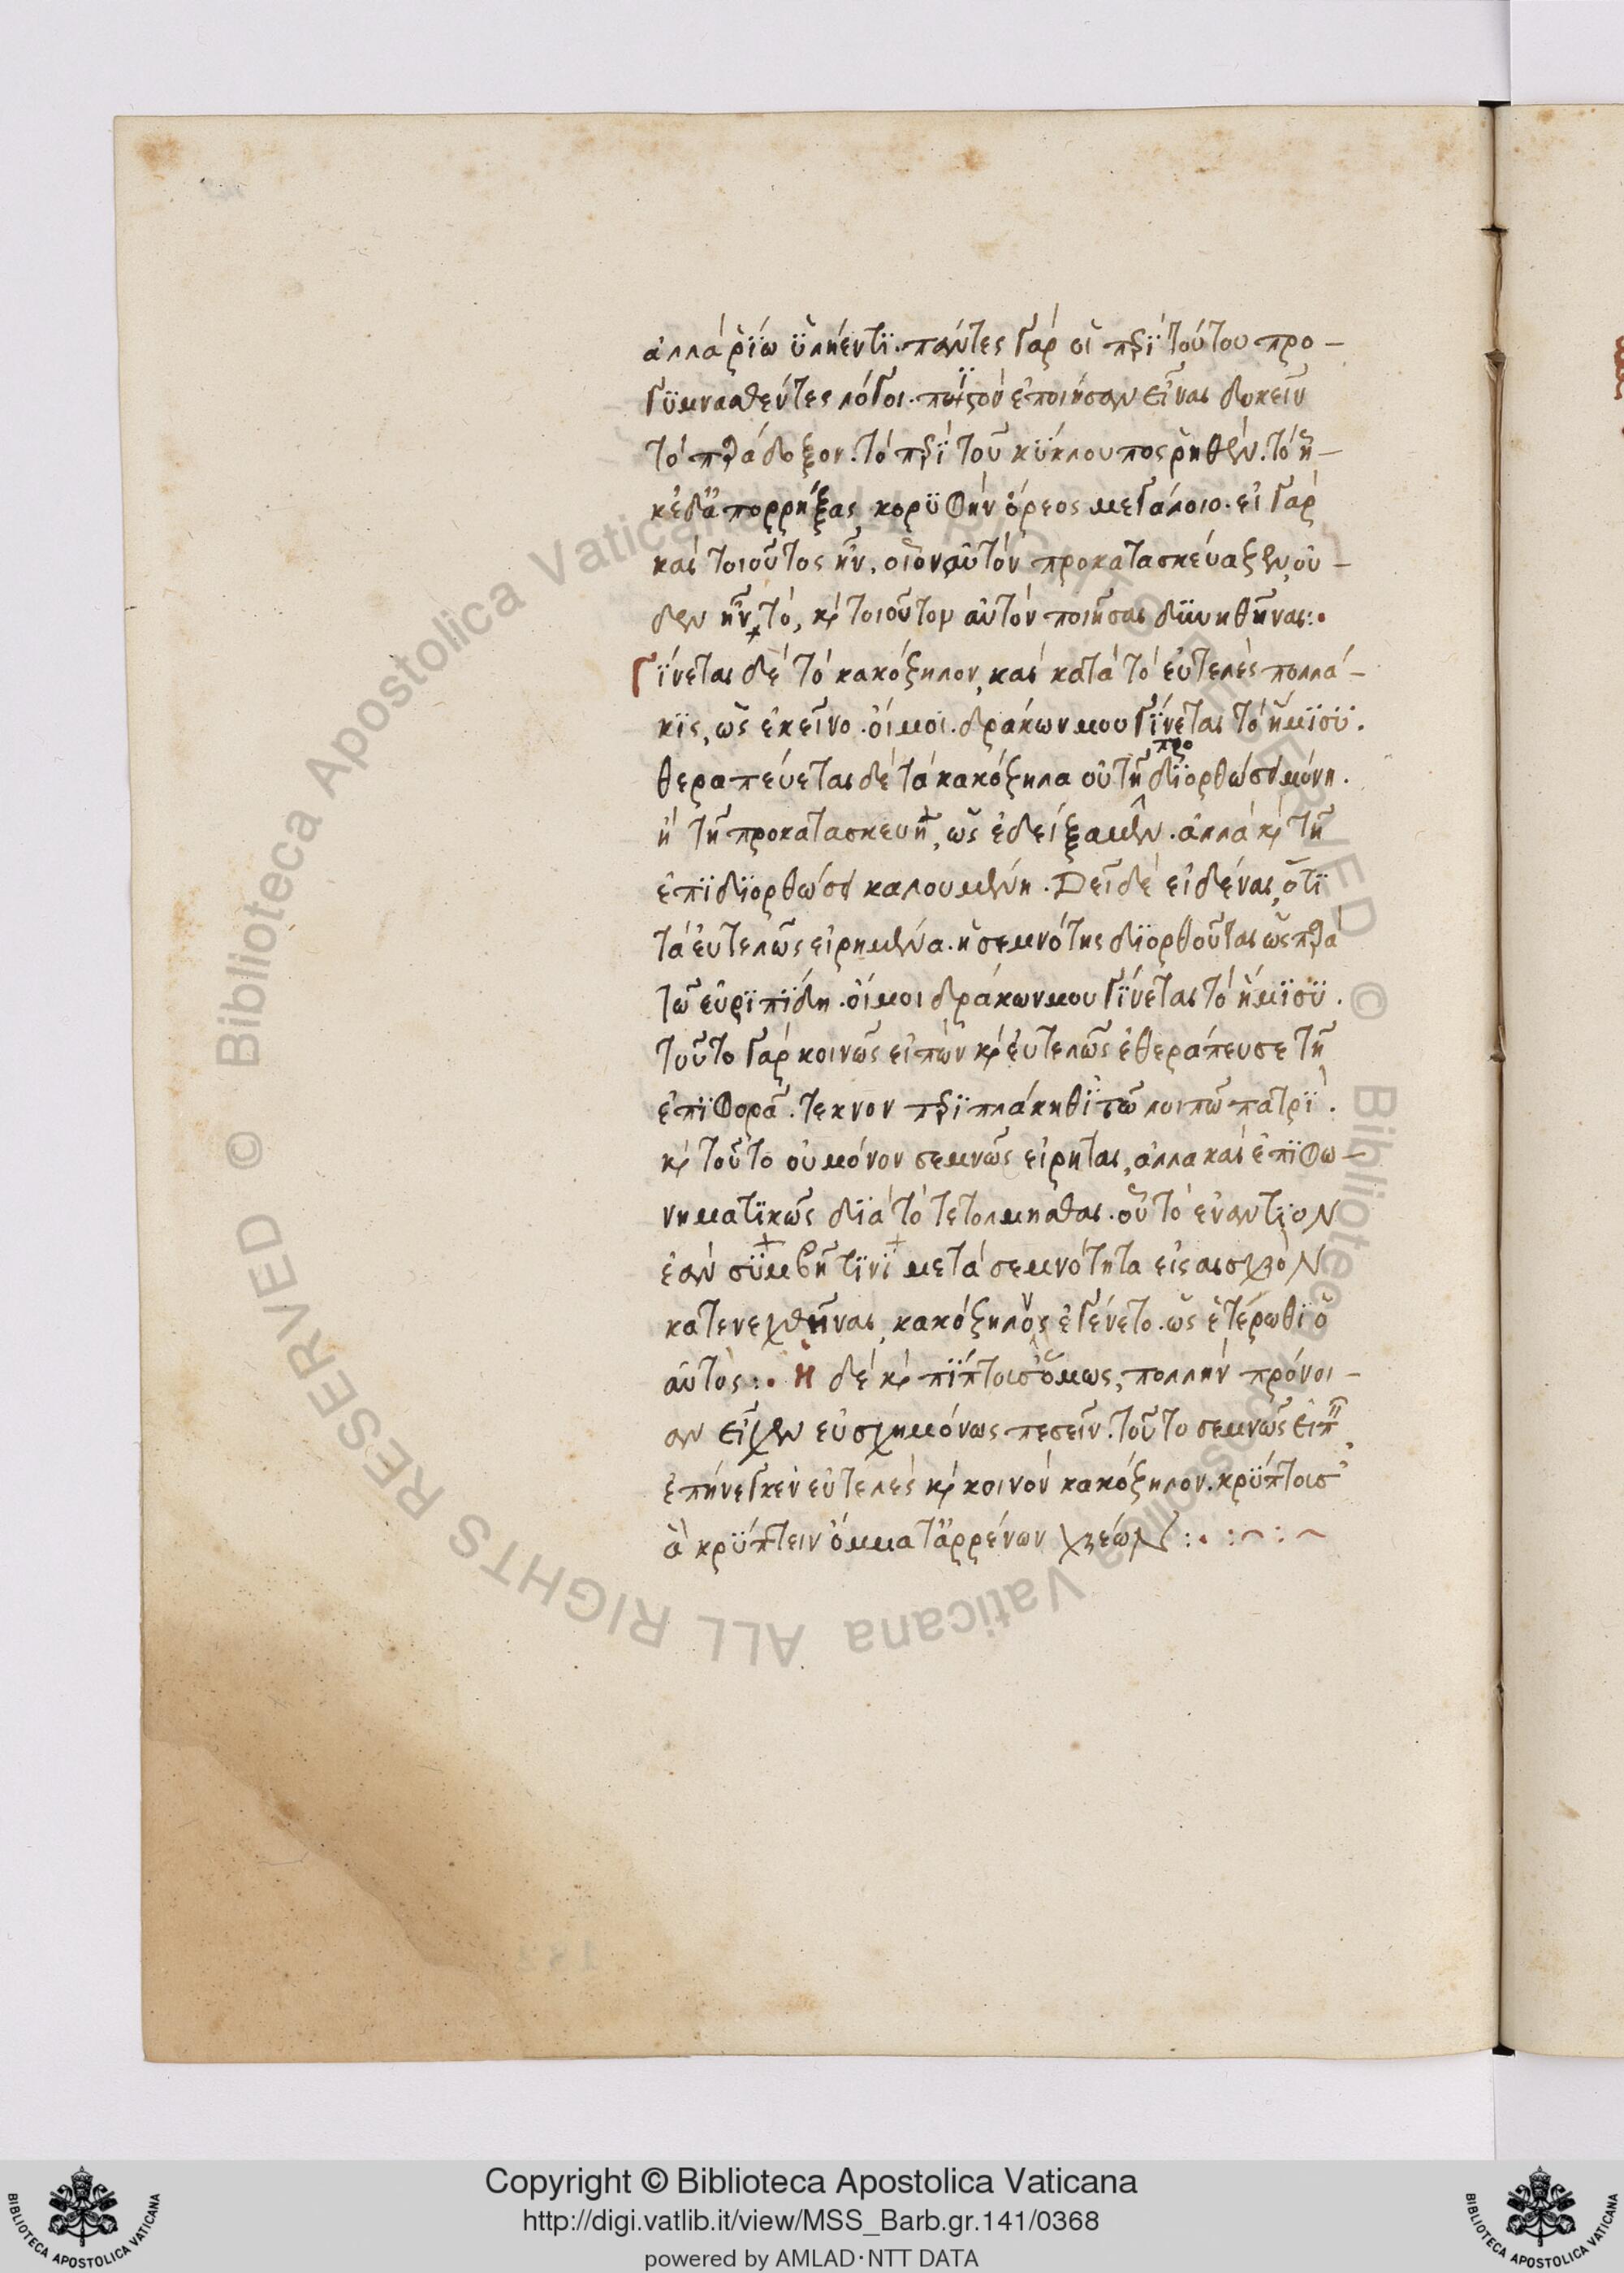 ἀλλὰ ῥΐω ὑλήεντϊ. πάντες γὰρ οἱ περὶ τούτου προ-
γϋμνασθέντες λόγοι. πϊστὸν ἐποίησαν εἶναι δοκεῖν
τὸ παράδοξον. τὸ περὶ τοῦ κϋκλουπος ῥηθέν. τὸ ἧ-
κε δ' ἀπορρήξας κορϋφὴν ὄρεος μεγάλοιο. εἰ γὰρ
καὶ τοιοῦτος ἦν, οἷον αὐτὸν προκατασκεύαξεν, οὐ-
δὲν ἦν τὸ, καὶ τοιοῦτον αὐτὸν ποιῆσαι δϋνηθῆναι:·
Γΐνεται δὲ τὸ κακόζηλον, καὶ κατὰ τὸ εὐτελὲς πολλά-
κϊς, ὡς ἐκεῖνο. οἴμοι. δράκων μου γΐνεται τὸ ἥμϊσϋ.
προ
θεραπεύεται δὲ τὰ κακόζηλα οὐ τῇ δϊορθώσει μόνη.
ἢ τῇ προκατασκευῇ, ὡς ἐδείξαμεν. ἀλλὰ καὶ τῇ
ἐπϊδϊορθώσει καλουμένη. Δεῖ δὲ εἰδέναι, ὅτϊ
τὰ εὐτελῶς εἰρημένα. ἡ σεμνότης δϊορθοῦται ὡς παρὰ
τῶ εὐρϊπϊδη. οἴμοι δράκων μου γΐνεται τὸ ἥμϊσϋ.
τοῦτο γὰρ κοινῶς εἰπὼν καὶ εὐτελῶς ἐθεράπευσε τῇ
ἐπϊφορᾶ. τεκνον περϊπλάκηθϊ τῶ λοιπῶ πατρϊ.
καὶ τοῦτο οὐ μόνον σεμνῶς εἴρηται, ἀλλα καὶ ἐπϊφω-
νηματϊκῶς δϊὰ τὸ τετολμῆσθαι. οὗ τὸ ἐναντϊον
ἐὰν σϋμβῇ τϊνϊ μετὰ σεμνότητα εἰς αισχρὸν
κατενεχθῆναι, κακόζηλος ἐγένετο. ὡς ἑτέρωθϊ ὁ
αὐτὸς:· Ἡ δὲ καὶ πΐπτουσ' ὅμως, πολλὴν πρόνοι-
αν εἶχεν εὐσχημόνως πεσεῖν. τοῦτο σεμνῶς εἰπ
ἐπήνεγκεν εὐτελὲς καὶ κοινὸν κακόζηλον. κρϋπτουσ'
ἃ κρϋπτειν ὄμματ' ἀρρένων χρεών:·
Copyright © Biblioteca Apostolica Vaticana
http://digi.vatlib.it/view/MSS_Barb.gr.141/0368
powered by AMLAD·NTT DATA